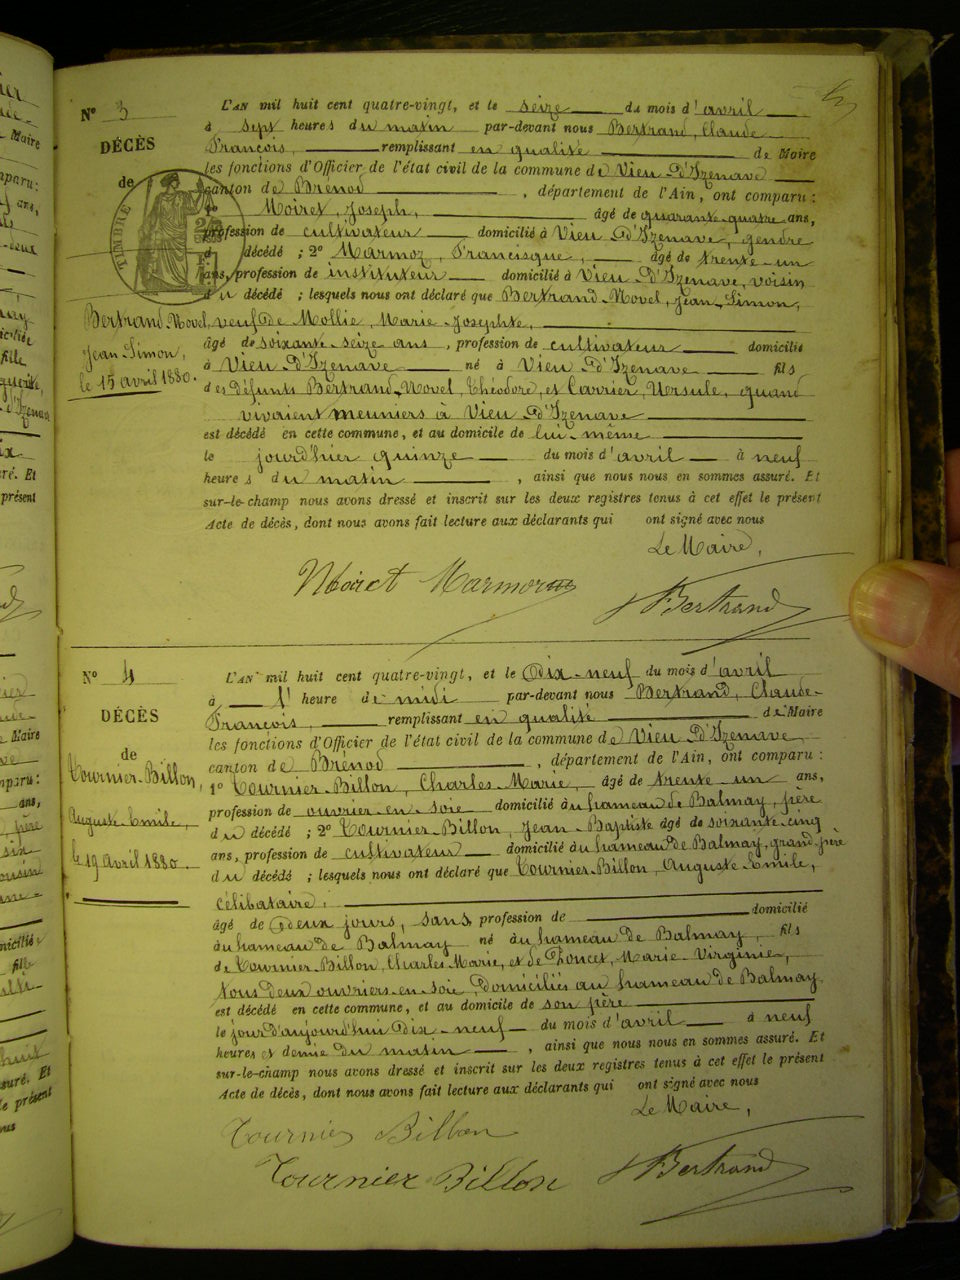 N° 3
DÉCÈS
de
TIMBRE
Bertrand-Novel,
Jean Simon,
le 15 avril 1880.
L'AN mil huit cent quatre-vingt, et le seize du mois d'avril
à sept heures du matin par-devant nous Bertrand, Claude
François, remplissant en qualité de Maire
les fonctions d'Officier de l'état civil de la commune de Vieu d'Izenave
canton de Brénod, département de l'Ain, ont comparu :
1° Moiret, Joseph, âgé de quarante-quatre ans,
profession de cultivateur domicilié à Vieu d'Izenave, gendre
d décédé ; 2° Marmoz, Francisque, âgé de trente-un
ans, profession de instituteur domicilié à Vieu d'Izenave, voisin
du décédé ; lesquels nous ont déclaré que Bertrand-Novel, Jean-Simon,
veuf de Mollie, Marie-Josephte,
âgé de soixante-seize ans, profession de cultivateur domicilié
à Vieu d'Izenave né à Vieu d'Izenave fils
des défunts Bertrand-Novel, Théodore, et Carrier, Ursule, quand
vivaient meuniers à Vieu d'Izenave
est décédé en cette commune, et au domicile de lui-même
le jourd'hier quinze du mois d'avril à neuf
heures du matin, ainsi que nous nous en sommes assuré. Et
sur-le-champ nous avons dressé et inscrit sur les deux registres tenus à cet effet le présent
Acte de décès, dont nous avons fait lecture aux déclarants qui ont signé avec nous
Le Maire,
Moiret Marmoz Bertrand
N° 4
DÉCÈS
de
Tournier-Billon,
Auguste Emile,
le 19 avril 1880.
L'AN mil huit cent quatre-vingt, et le dix-neuf du mois d'avril
à 1' heure de midi par-devant nous Bertrand, Claude-
François, remplissant en qualité de Maire
les fonctions d'Officier de l'état civil de la commune de Vieu d'Izenave
canton de Brénod, département de l'Ain, ont comparu :
1° Tournier-Billon, Charles-Marie, âgé de trente-un ans,
profession de ouvrier-en-soie domicilié au hameau de Balmay, père
du décédé ; 2° Tournier-Billon, Jean-Baptiste âgé de soixante-cinq
ans, profession de cultivateur domicilié au hameau de Balmay, grand-père
du décédé ; lesquels nous ont déclaré que Tournier-Billon, Auguste-Emile,
célibataire,
âgé de deux jours, sans profession de domicilié
au hameau de Balmay né au hameau de Balmay, fils
de Tournier-Billon, Charles-Marie, et de Poncet, Marie-Virginie,
tous deux ouvriers-en-soie, domiciliés au hameau de Balmay
est décédé en cette commune, et au domicile de son père
le jourd'aujourd'hui dix-neuf du mois d'avril à neuf
heures et demie du matin, ainsi que nous nous en sommes assuré. Et
sur-le-champ nous avons dressé et inscrit sur les deux registres tenus à cet effet le présent
Acte de décès, dont nous avons fait lecture aux déclarants qui ont signé avec nous
Le Maire,
Tournier Billon
Tournier Billon Bertrand